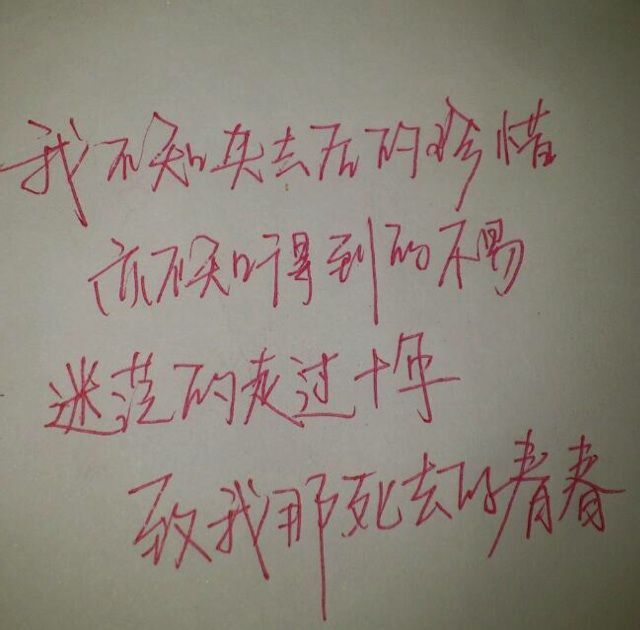 我不知失去后的珍惜
亦不知得到的不易
迷茫的走过十年
致我那死去的青春